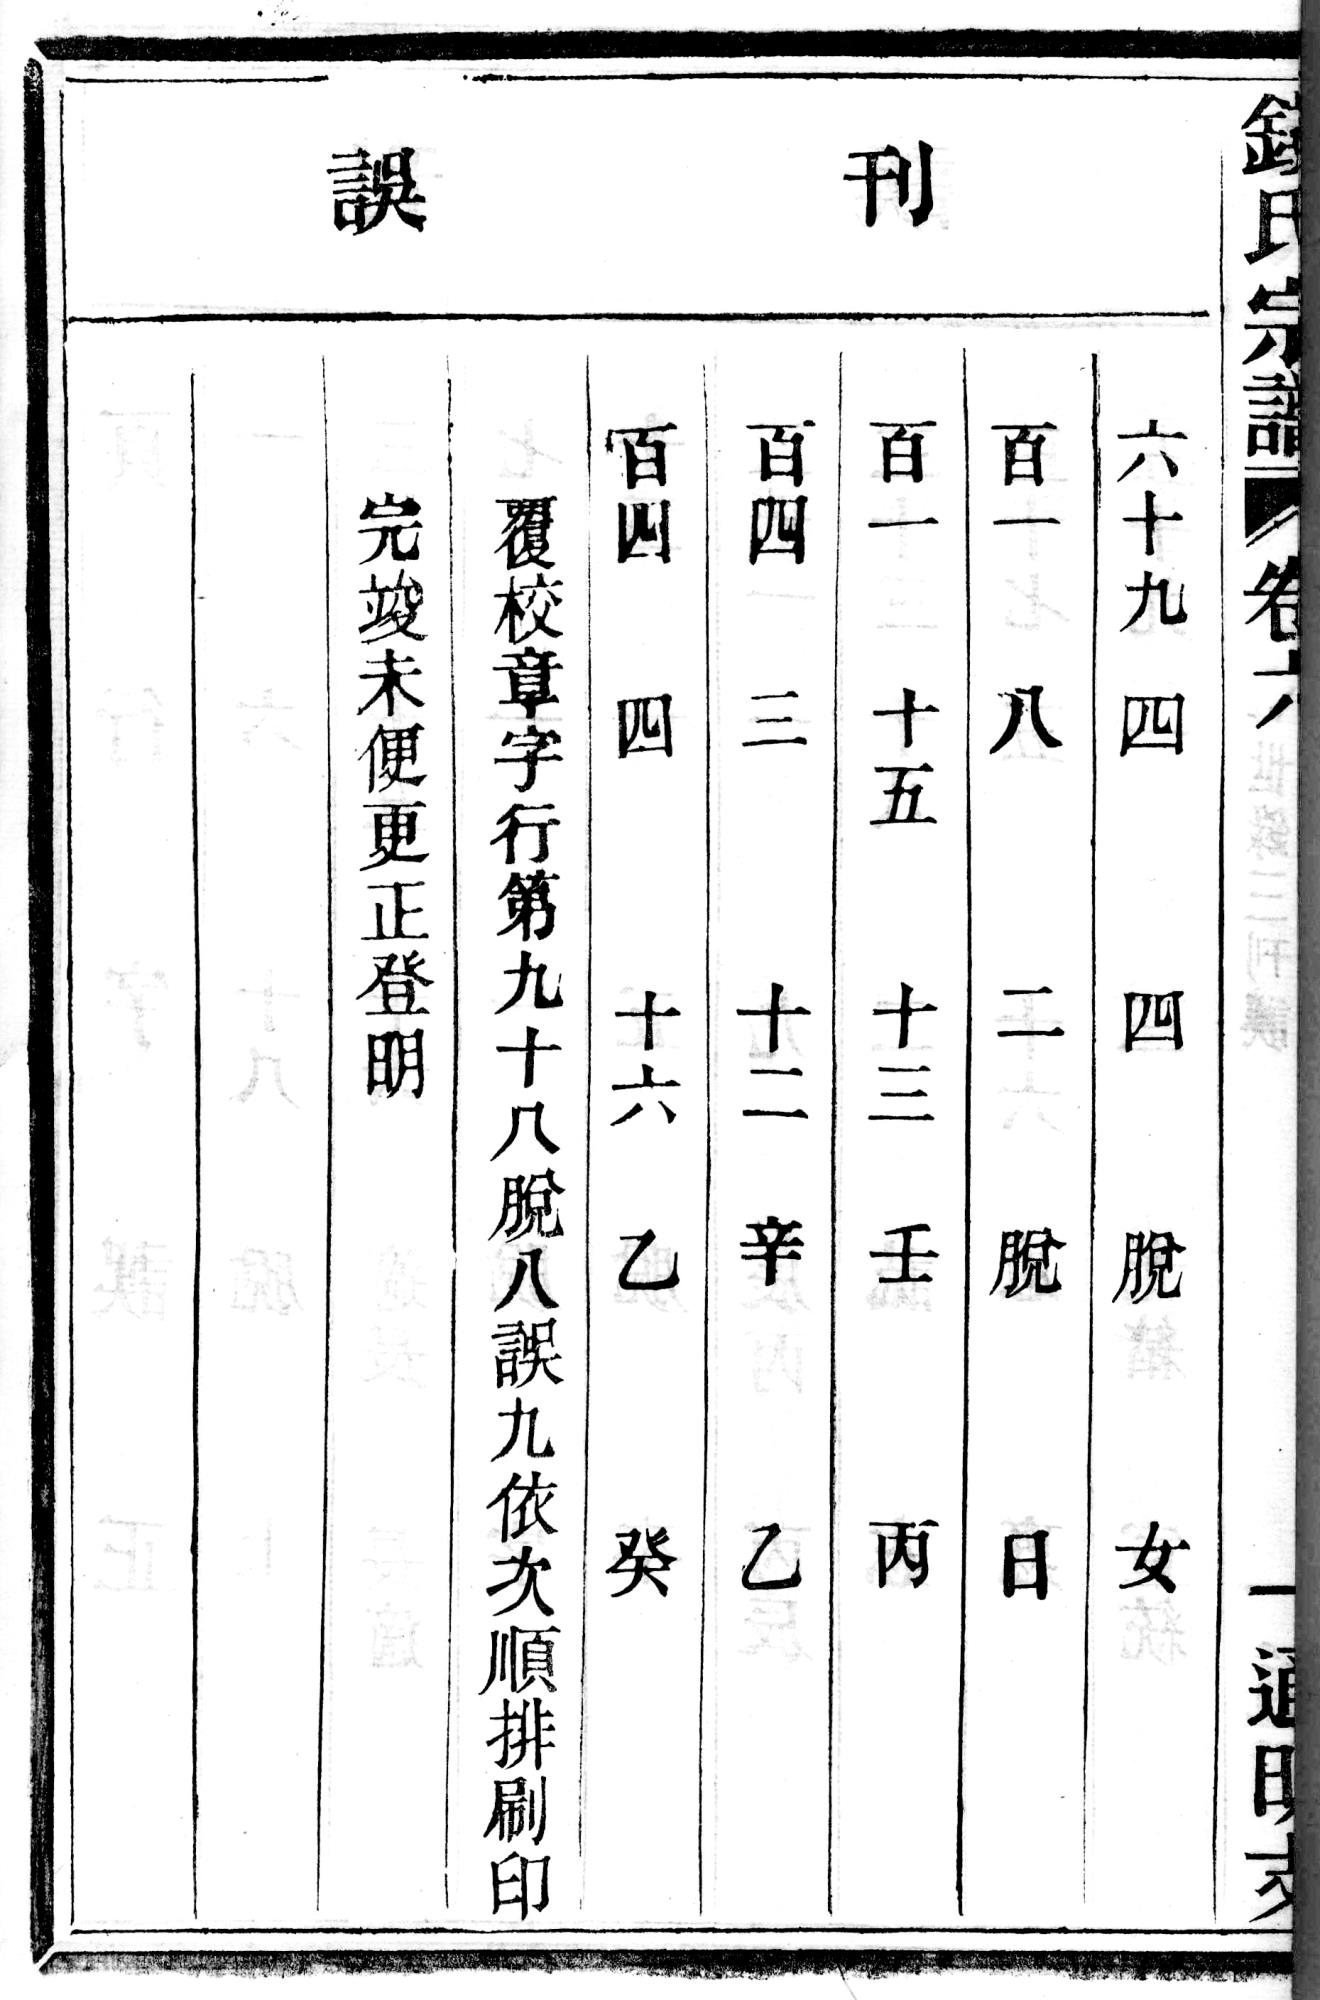 錢氏宗譜 卷六 一 通明支
刊誤
六十九 四 四 脫 女
百一 八 二 脫 日
百一 十五 十三 壬 丙
百四 三 十二 辛 乙
百四 四 十六 乙 癸
覆校章字行第九十八脫八誤九依次順排刷印
完竣未便更正登明